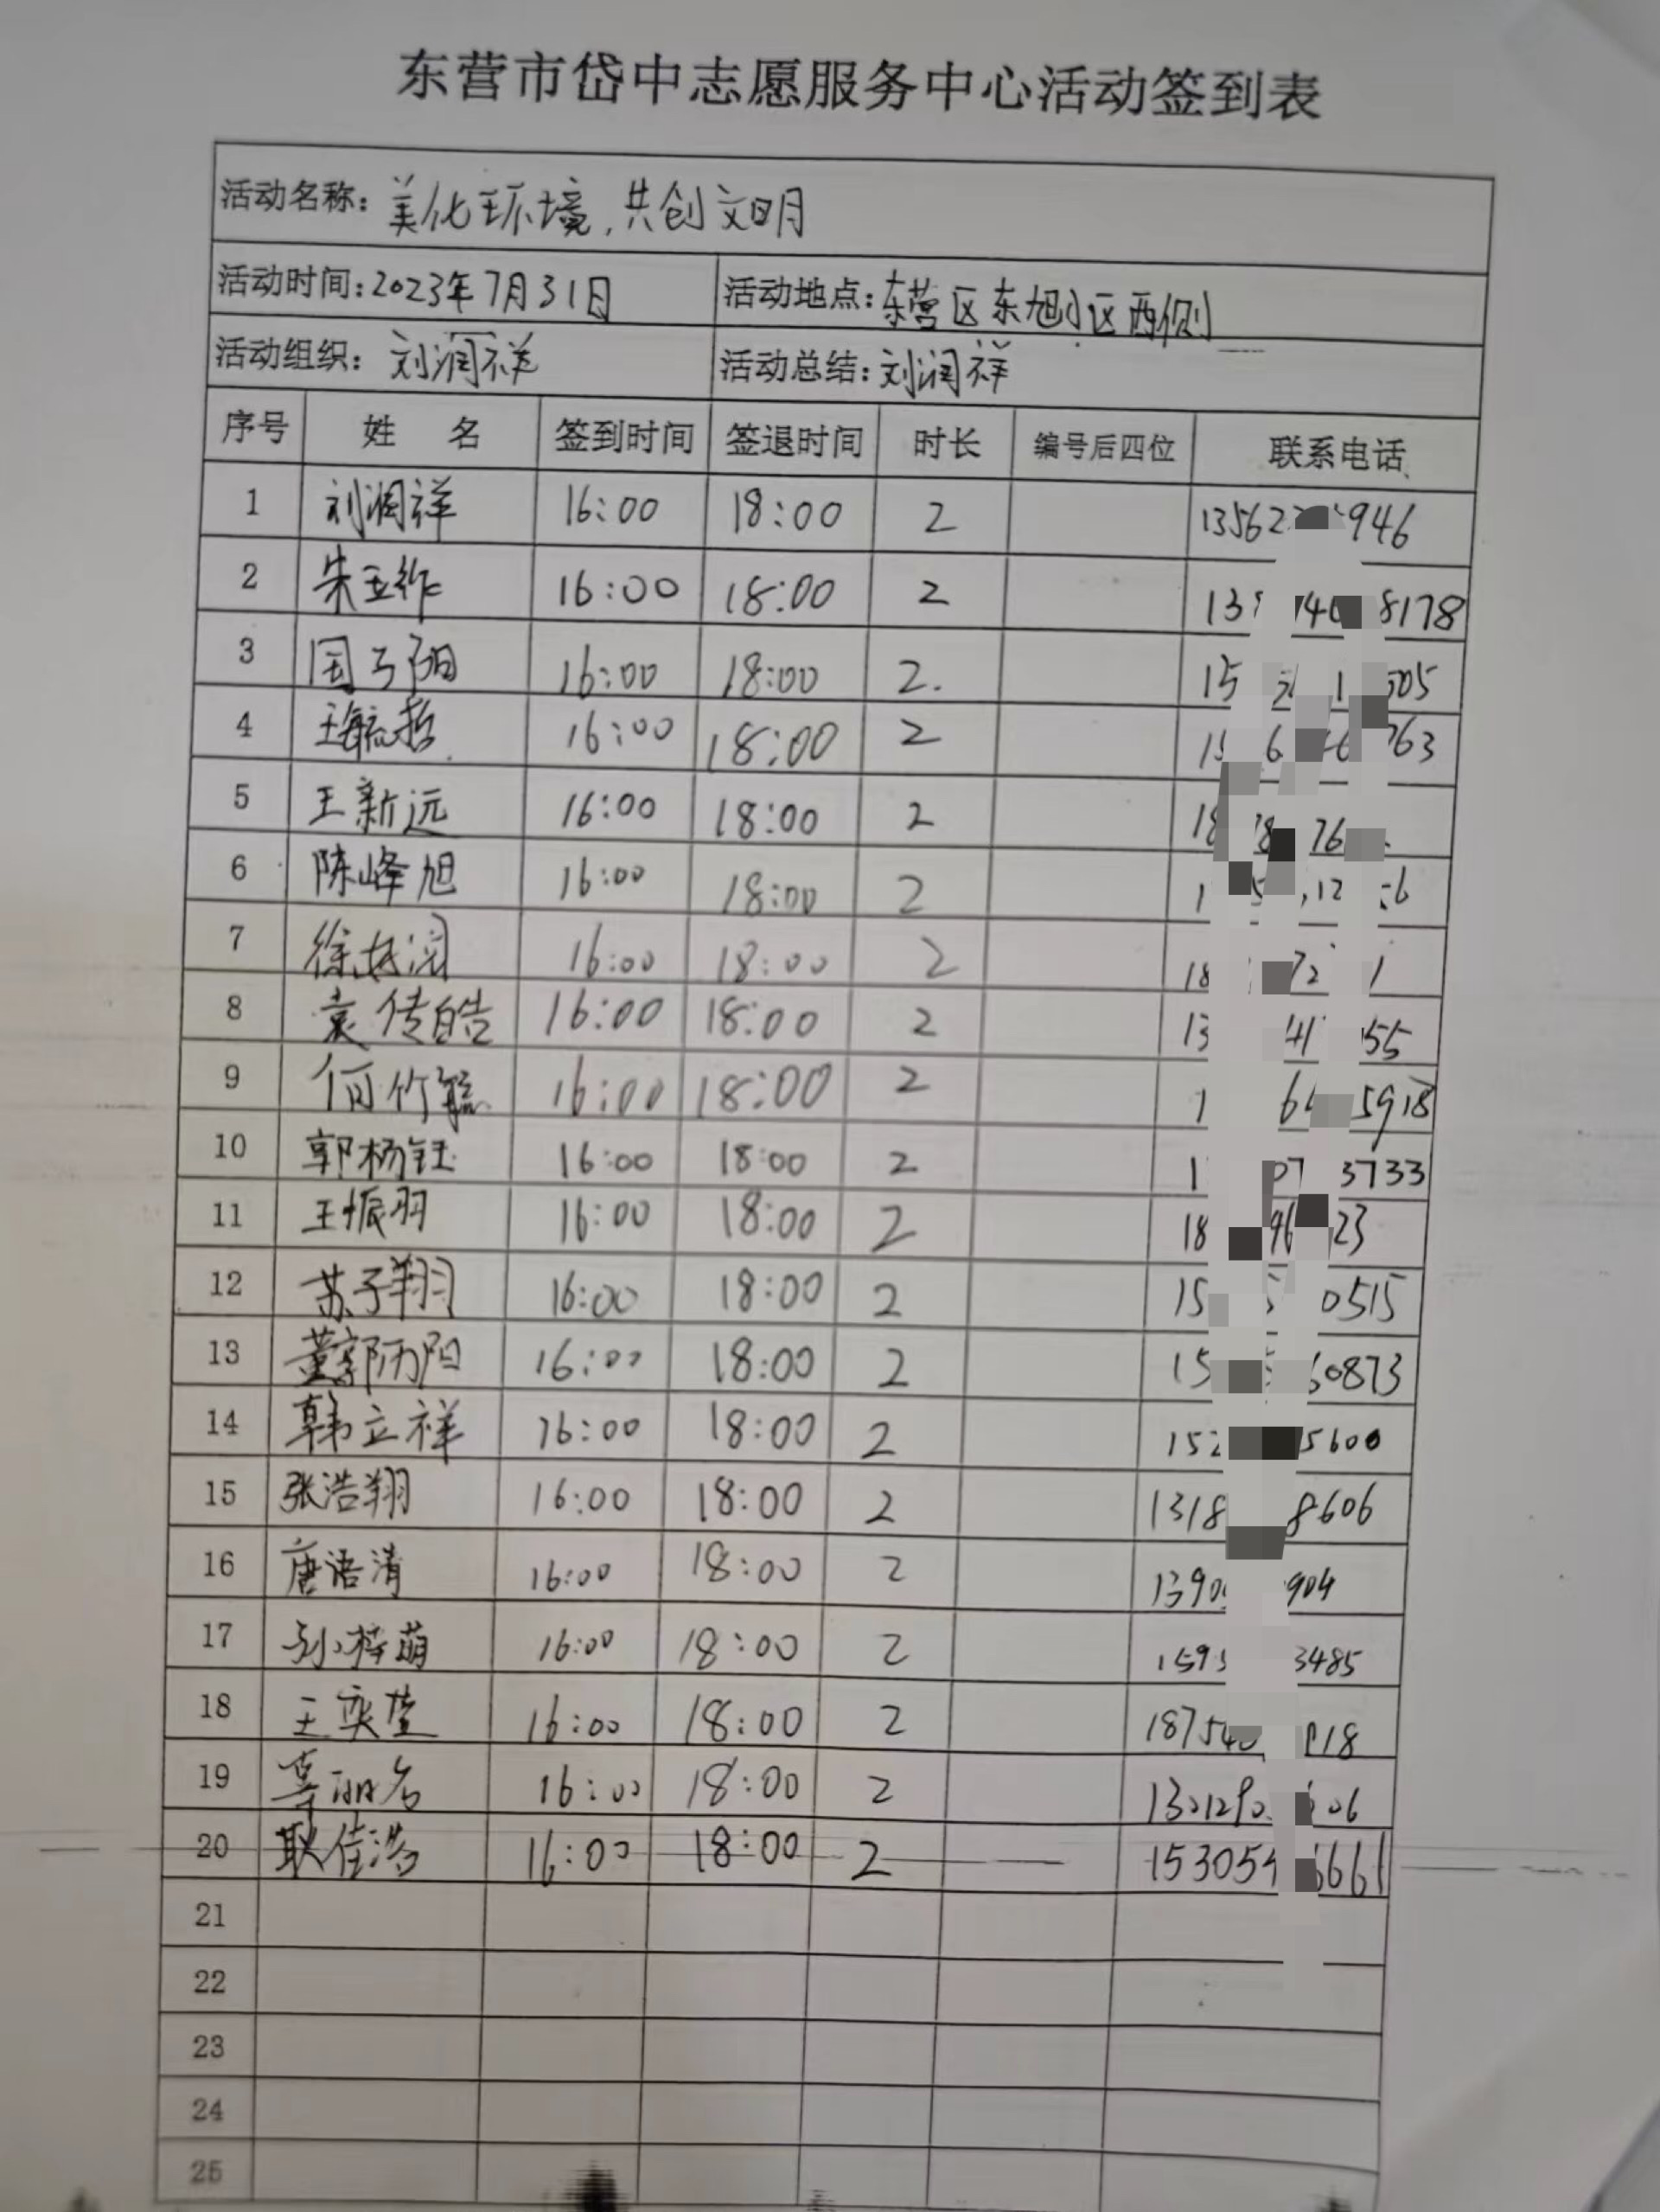 东营市岱中志愿服务中心活动签到表
活动名称：美化环境，共创文明
活动时间：2023年7月31日 活动地点：东营区东旭小区西侧
活动组织：刘润祥 活动总结：刘润祥
序号 姓 名 签到时间 签退时间 时长 编号后四位 联系电话
1 刘润祥 16:00 18:00 2 13562 946
2 朱玉祚 16:00 18:00 2 13 8178
3 国子阳 16:00 18:00 2. 15 505
4 王毓哲 16:00 18:00 2 15 763
5 王新远 16:00 18:00 2 18 76
6 陈峰旭 16:00 18:00 2 1 12 6
7 徐 16:00 18:00 2 18 72 1
8 袁传皓 16:00 18:00 2 13 41 55
9 何竹毓 16:00 18:00 2 1 6 5918
10 郭杨钰 16:00 18:00 2 1 07 3733
11 王振羽 16:00 18:00 2 18 96 23
12 苏子翔 16:00 18:00 2 15 0515
13 董郭历阳 16:00 18:00 2 15 60873
14 韩立祥 16:00 18:00 2 152 5600
15 张浩翔 16:00 18:00 2 1318 8606
16 唐语清 16:00 18:00 2 1390 904
17 孙梓萌 16:00 18:00 2 1595 3485
18 王奕莹 16:00 18:00 2 18754 118
19 16:00 18:00 2 1301290 606
20 耿佳浩 16:00 18:00 2 153054 6661
21
22
23
24
25